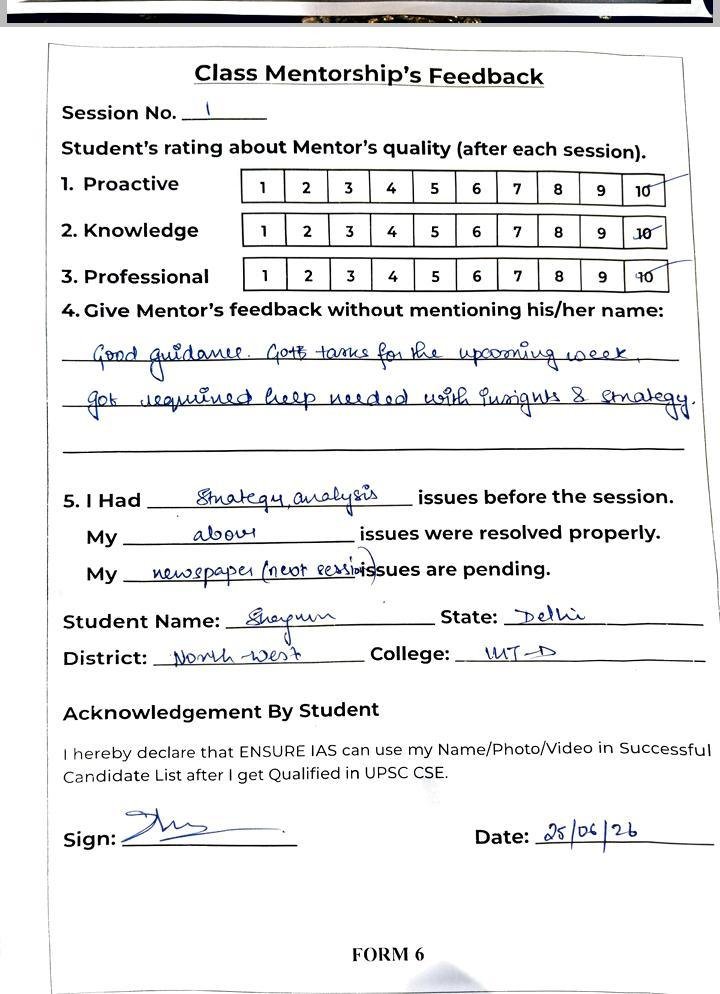 Class Mentorship's Feedback
Session No. 1
Student's rating about Mentor's quality (after each session).
1. Proactive 1 2 3 4 5 6 7 8 9 10
2. Knowledge 1 2 3 4 5 6 7 8 9 10
3. Professional 1 2 3 4 5 6 7 8 9 10
4. Give Mentor's feedback without mentioning his/her name:
Good guidance. Gott tasks for the upcoming week.
got required help needed with insights & strategy.
5. I Had Strategy, analysis issues before the session.
My above issues were resolved properly.
My newspaper (next session) issues are pending.
Student Name: State: Delhi
District: North-west College:
Acknowledgement By Student
I hereby declare that ENSURE IAS can use my Name/Photo/Video in Successful
Candidate List after I get Qualified in UPSC CSE.
Sign:
Date: 25/06/26
FORM 6